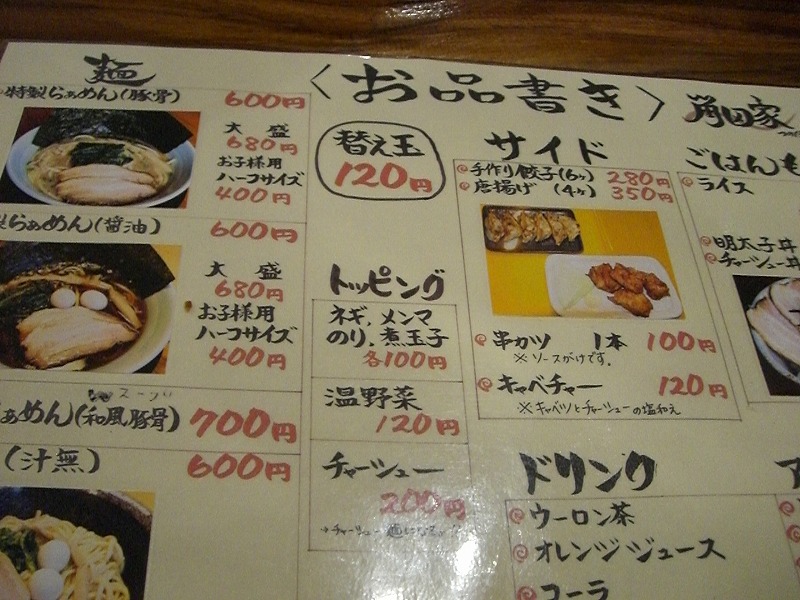 〈お品書き〉
麺
特製らぁめん(豚骨) 600円
大盛
680円
お子様用
ハーフサイズ
400円
らぁめん(醤油) 600円
大盛
680円
お子様用
ハーフサイズ
400円
らぁめん(和風豚骨) 700円
(汁無) 600円
替え玉
120円
トッピング
ネギ,メンマ
のり,煮玉子
各100円
温野菜
120円
チャーシュー
200円
サイド
手作り餃子(6ヶ) 280円
唐揚げ(4ヶ) 350円
串カツ 1本 100円
※ソースがけです。
キャベチャー 120円
※キャベツとチャーシューの塩和え
ドリンク
ウーロン茶
オレンジジュース
コーラ
角田家
ごはんも
ライス
明太子丼
チャーシュー丼